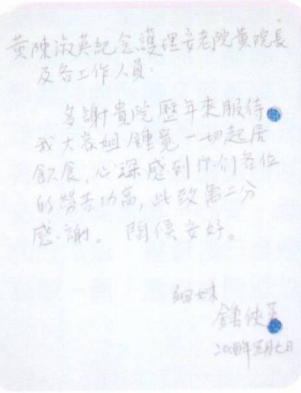 黃陳淑英紀念護理安老院黃院長
及各工作人員:
多謝貴院歷年來服侍
我大家姐鍾覺一切起居
飲食,心深感到你们各位
的勞苦功高,此致萬二分
感謝。 闔候安好。
細妹
鍾俠
月七日